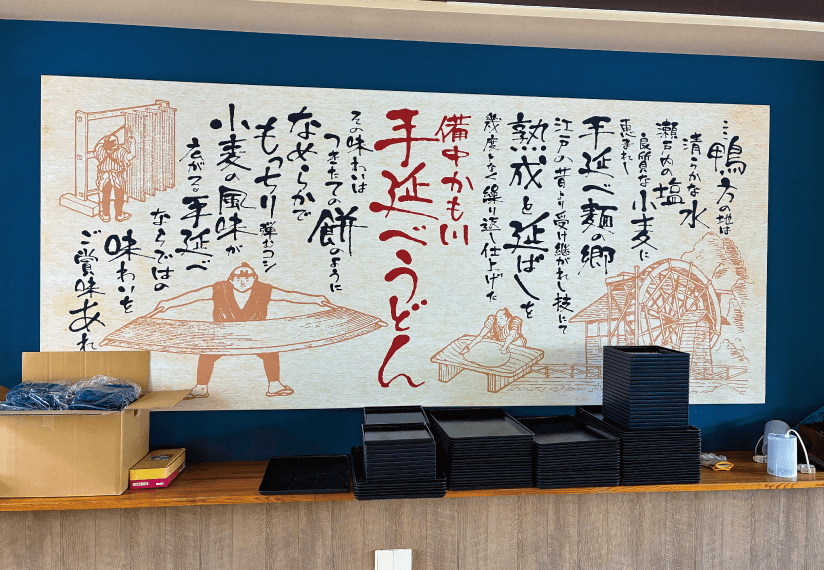 ここ鴨方の地は
清らかな水
瀬戸内の塩
良質な小麦に
恵まれし
手延べ麺の郷
江戸の昔より受け継がれし技にて
熟成と延ばしを
幾度となく繰り返し仕上げた
備中かも川
手延べうどん
その味わいは
つきたての餅のように
なめらかで
もっちり弾むコシ
小麦の風味が
広がる。手延べ
ならではの
味わいを
ご賞味あれ